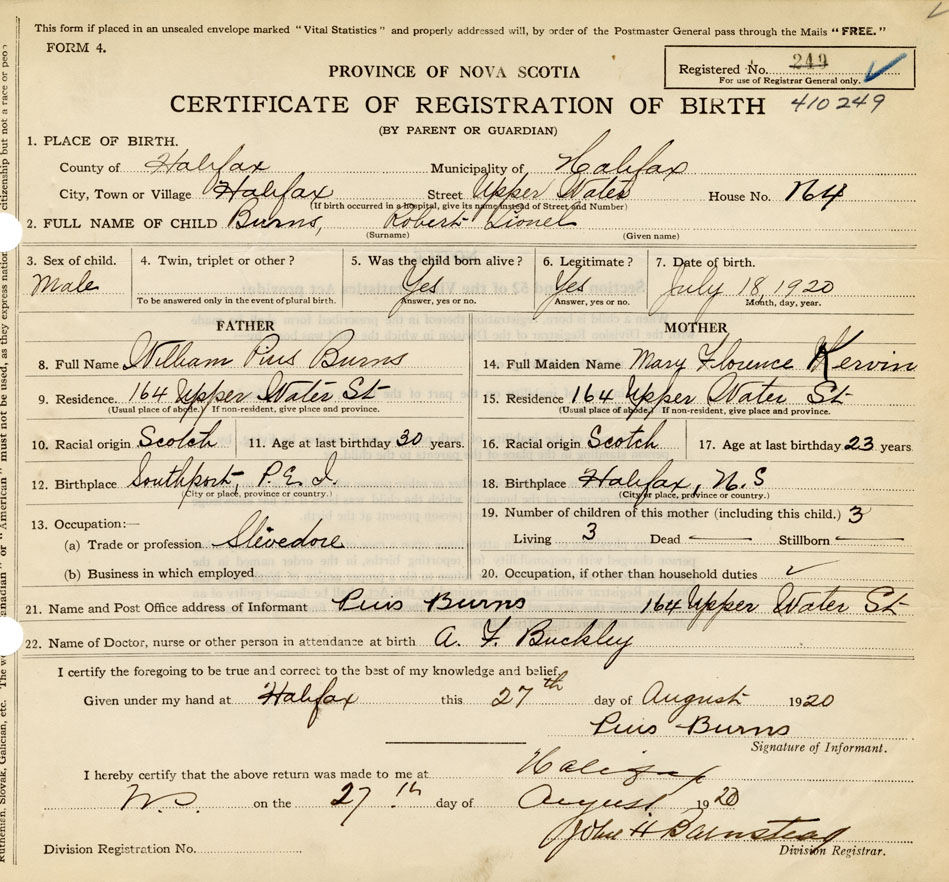 This form if placed in an unsealed envelope marked "Vital Statistics" and properly addressed will, by order of the Postmaster General pass through the Mails "FREE."
FORM 4.
Registered No. 249
For use of Registrar General only.
PROVINCE OF NOVA SCOTIA
CERTIFICATE OF REGISTRATION OF BIRTH 410249
(BY PARENT OR GUARDIAN)
1. PLACE OF BIRTH.
County of Halifax Municipality of Halifax
City, Town or Village Halifax Street Upper Water House No. 164
(If birth occurred in a hospital, give its name instead of Street and Number)
2. FULL NAME OF CHILD Burns, Robert Lionel
(Surname) (Given name)
3. Sex of child. 4. Twin, triplet or other? 5. Was the child born alive? 6. Legitimate? 7. Date of birth.
Male Yes Yes July 18, 1920
To be answered only in the event of plural birth. Answer, yes or no. Answer, yes or no. Month, day, year.
FATHER MOTHER
8. Full Name William Pius Burns 14. Full Maiden Name Mary Florence Kervin
9. Residence. 164 Upper Water St 15. Residence 164 Upper Water St
(Usual place of abode.) If non-resident, give place and province. (Usual place of abode.) If non-resident, give place and province.
10. Racial origin Scotch 11. Age at last birthday 30 years. 16. Racial origin Scotch 17. Age at last birthday 23 years
12. Birthplace Southport, P.E.I. 18. Birthplace Halifax, N.S
(City or place, province or country.) (City or place, province or country.)
13. Occupation:— 19. Number of children of this mother (including this child.) 3
(a) Trade or profession Stevedore Living 3 Dead — Stillborn —
(b) Business in which employed 20. Occupation, if other than household duties ✓
21. Name and Post Office address of Informant Pius Burns 164 Upper Water St
22. Name of Doctor, nurse or other person in attendance at birth A. F. Buckley
I certify the foregoing to be true and correct to the best of my knowledge and belief.
Given under my hand at Halifax this 27th day of August 1920
Pius Burns
Signature of Informant.
I hereby certify that the above return was made to me at Halifax
N.S. on the 27th day of August 1920
John H Barnstead
Division Registration No. Division Registrar.